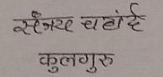 संजय चहांदे
कुलगुरु